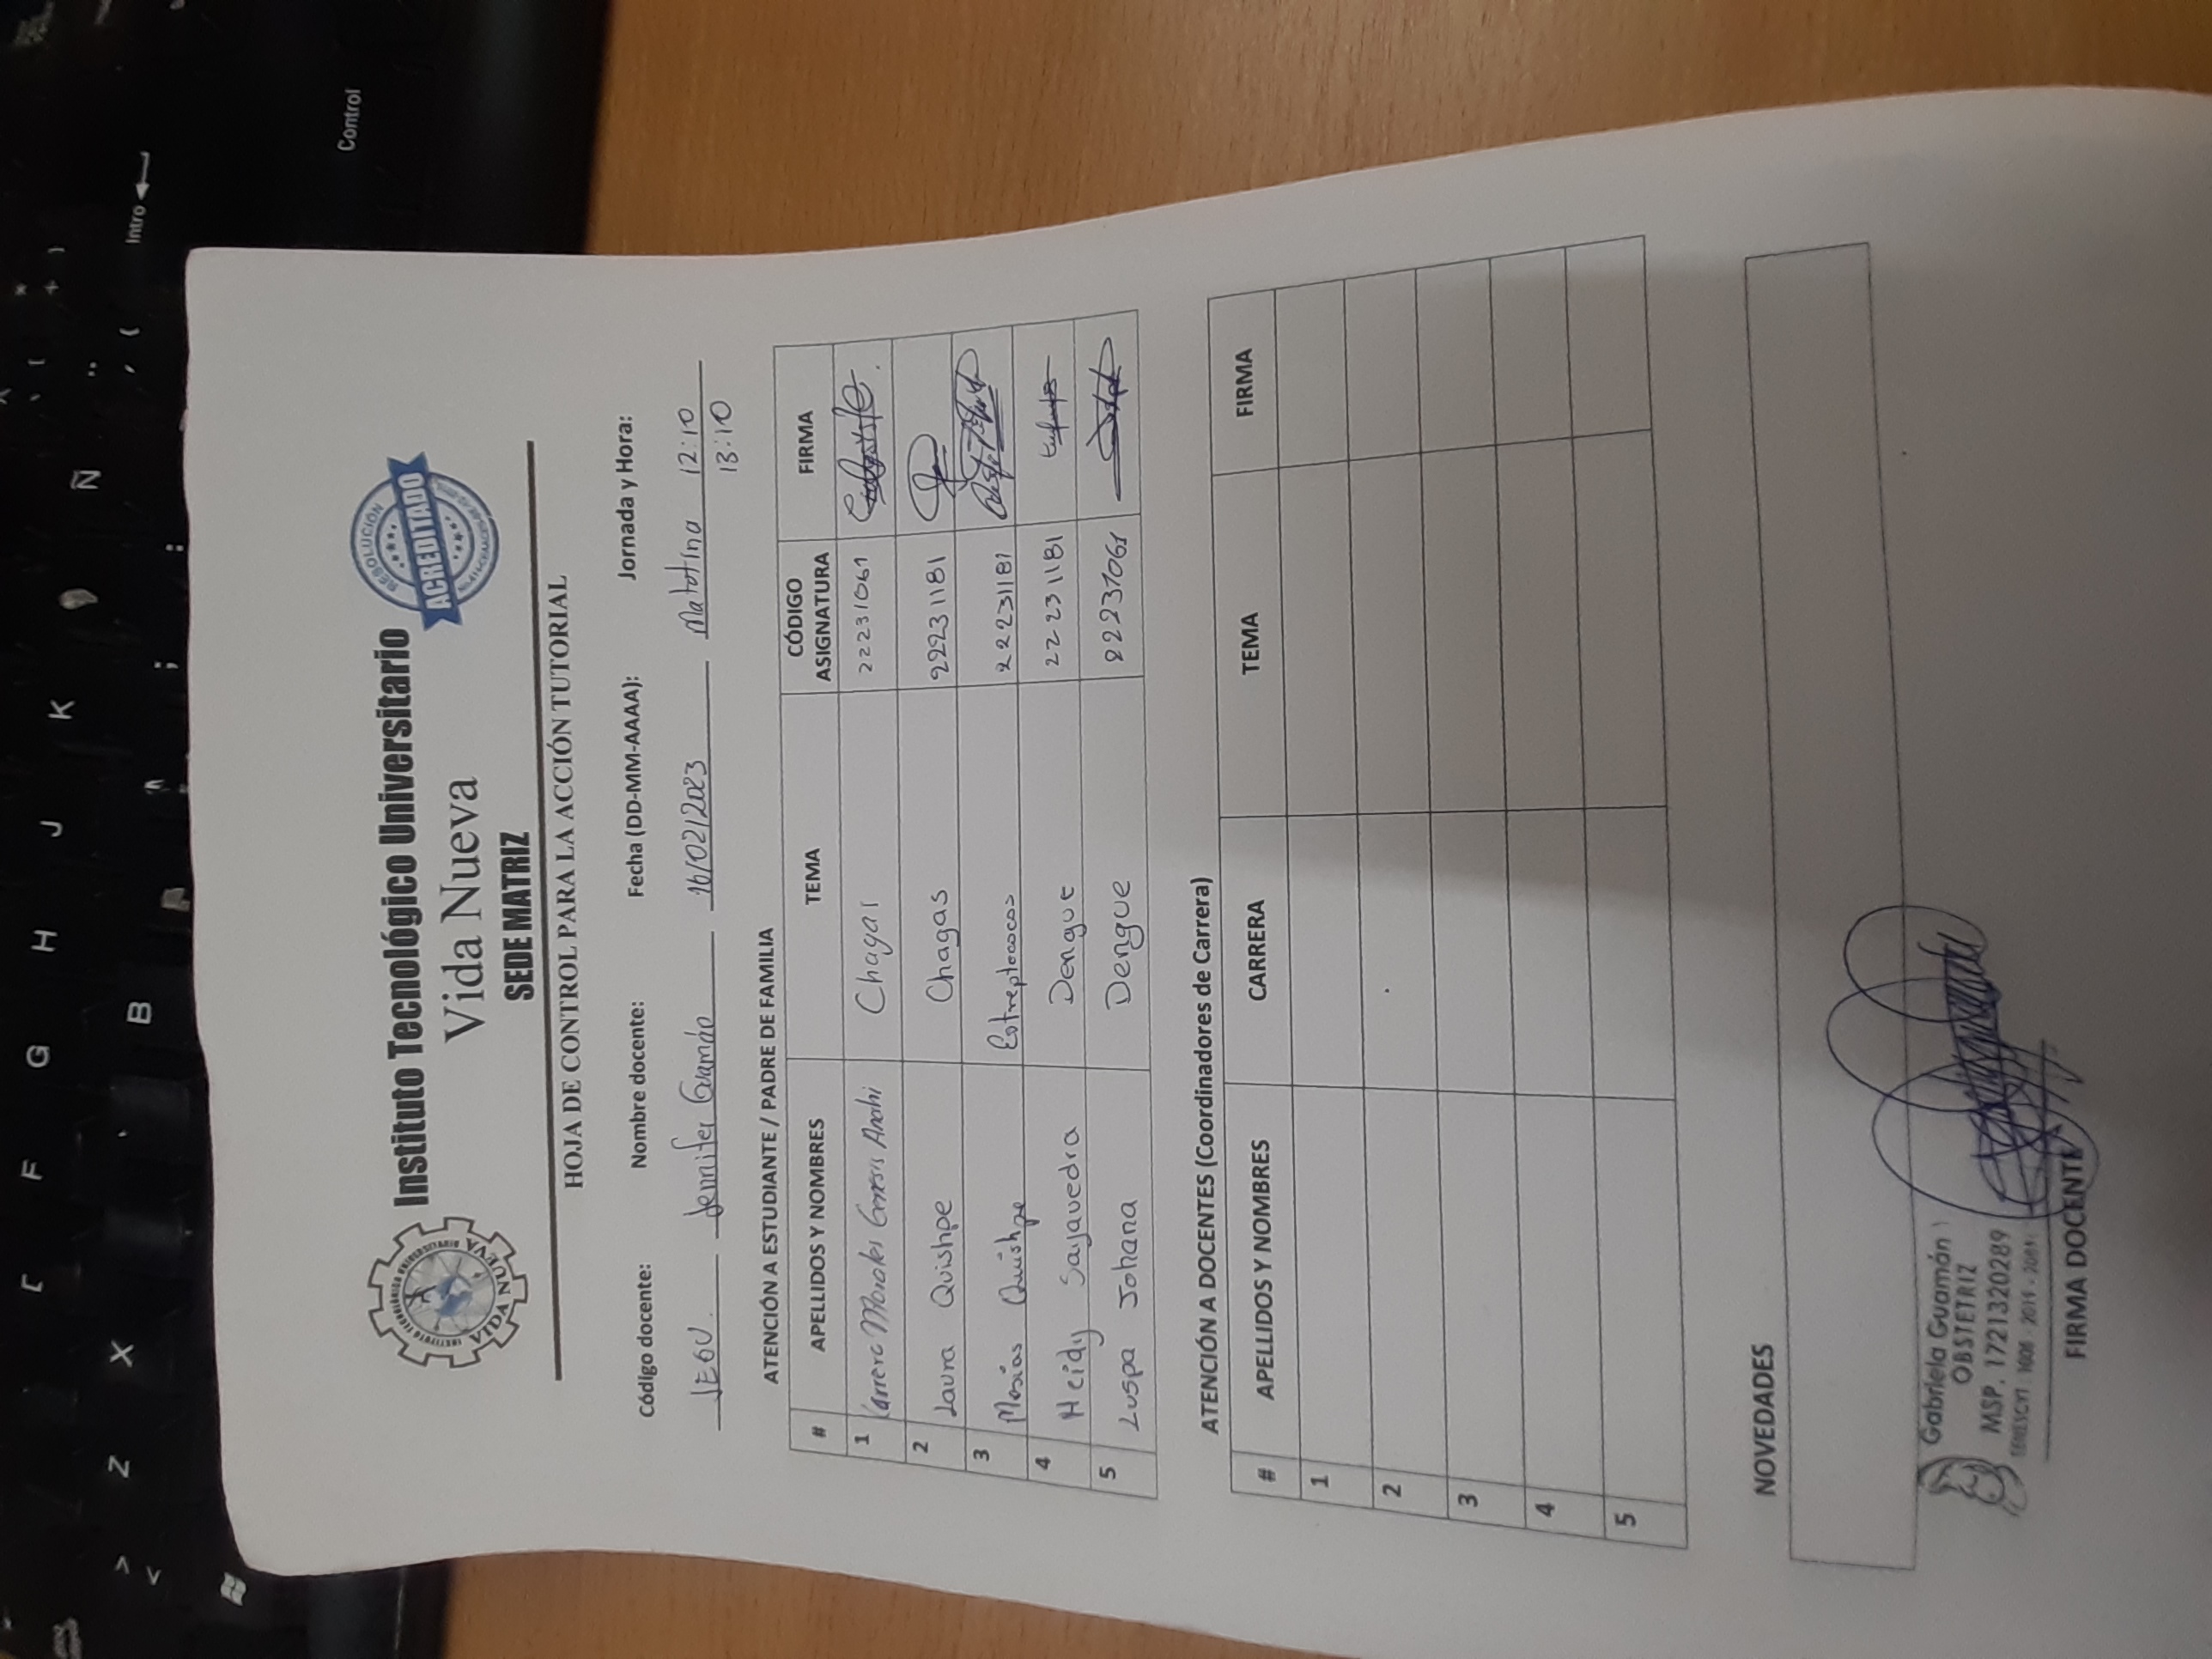 F G H J K Ñ
Z X B ; :
Intro
Control
INSTITUTO TECNOLÓGICO UNIVERSITARIO
VIDA NUEVA
Instituto Tecnológico Universitario
Vida Nueva
SEDE MATRIZ
RESOLUCIÓN
ACREDITADO
HOJA DE CONTROL PARA LA ACCIÓN TUTORIAL
Código docente: Nombre docente: Fecha (DD-MM-AAAA): Jornada y Hora:
JEGU. Jennifer Guamán 16/02/2023 Matutina 12:10
13:10
ATENCIÓN A ESTUDIANTE / PADRE DE FAMILIA
# APELLIDOS Y NOMBRES TEMA CÓDIGO ASIGNATURA FIRMA
1 Carrera Morales Genesis Anahi Chagas 22231061
2 Laura Quishpe Chagas 22231181
3 Mesias Quishpe Estreptococos 22231181
4 Heidy Sayavedra Dengue 22231181
5 Luspa Johana Dengue 22231061
ATENCIÓN A DOCENTES (Coordinadores de Carrera)
# APELLIDOS Y NOMBRES CARRERA TEMA FIRMA
1
2
3
4
5
NOVEDADES
Gabriela Guamán
OBSTETRIZ
MSP. 1721320289
SENESCYT
FIRMA DOCENTE